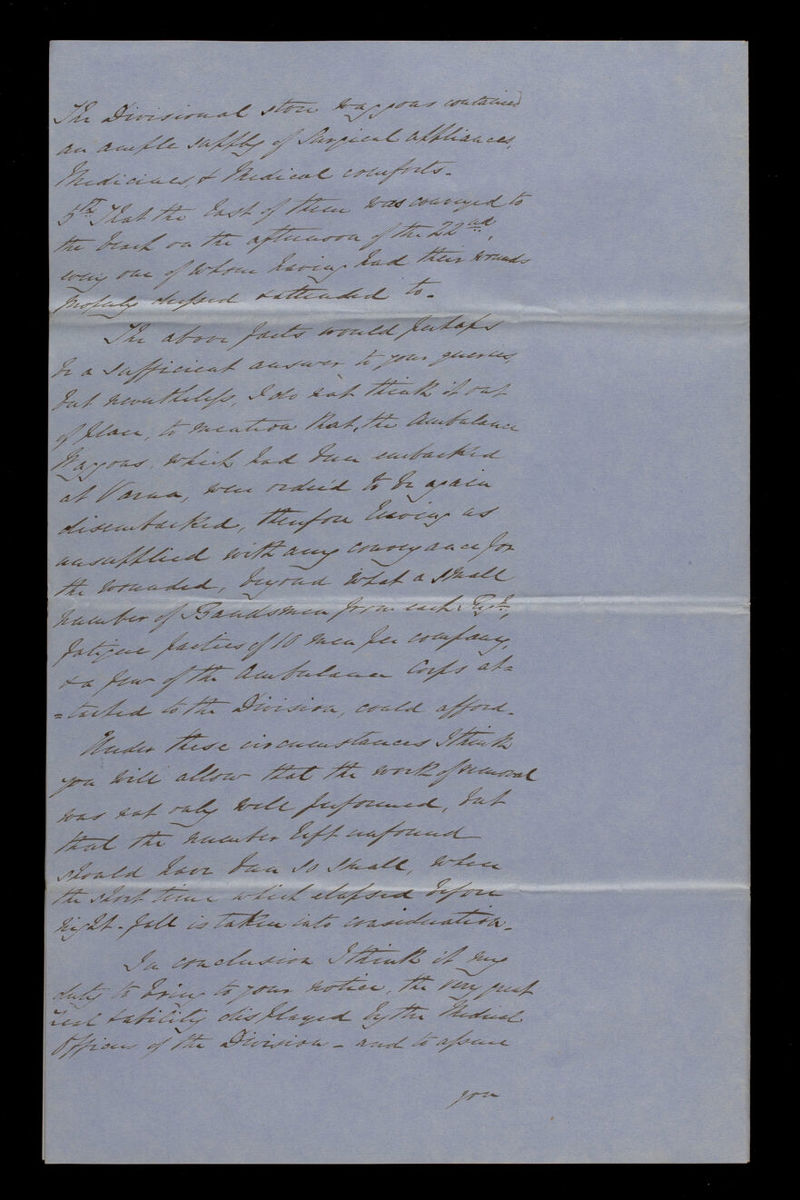 The Divisional store waggons contained
an ample supply of Surgical appliances,
Medicines, & Medical comforts.
5th That the last of them was conveyed to
the beach on the afternoon of the 22nd,
every one of whom having had their wounds
properly dressed & attended to.
The above facts would perhaps
be a sufficient answer to your queries,
but nevertheless, I do not think it out
of place, to mention that, the Ambulance
Waggons, which had been embarked
at Varna, were order'd to be again
disembarked, therefore leaving us
unsupplied with any conveyance for
the wounded, beyond what a small
number of Bandsmen from each Regt,
fatigue parties of 10 men per company,
& a few of the Ambulance Corps at=
=tached to the Division, could afford.
Under these circumstances I think
you will allow that the work of removal
was not only well performed, but
that the number left unfound
should have been so small, when
the short time which elapsed before
night-fall is taken into consideration.
In conclusion I think it my
duty to bring to your notice, the very great
zeal & ability displayed by the Medical
Officers of the Division - and to assure
you